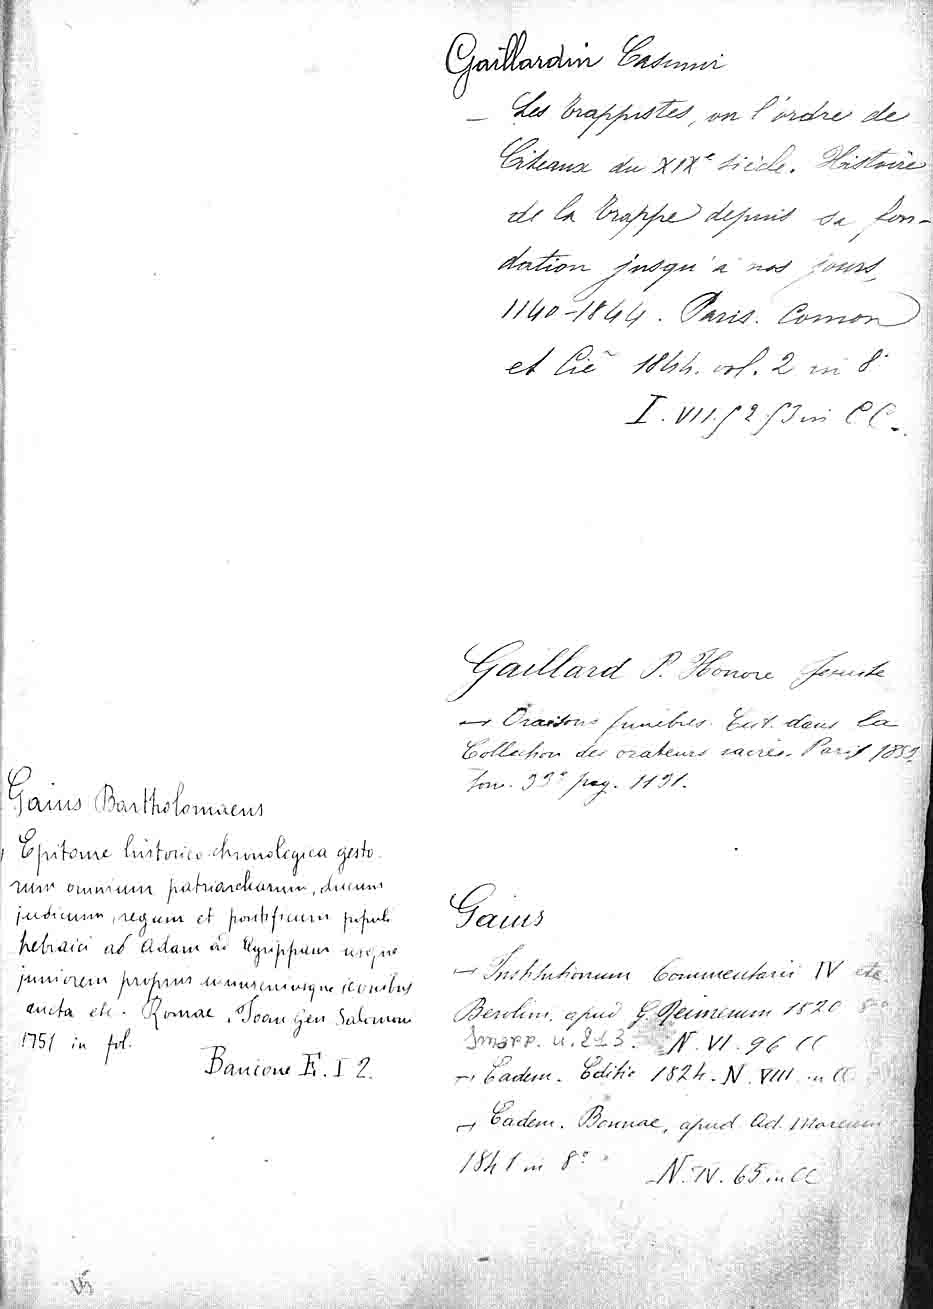 Gaillardin Casimir
— Les Trappistes, ou l'ordre de
Citeaux du XIXe siècle. Histoire
de la Trappe depuis sa fon-
dation jusqu'à nos jours,
1140-1844. Paris. Comon
et Cie 1844. vol. 2 in 8°
I. VII. f 2. f 3 in CC.
Gaillard P. Honore Jesuite
— Oraisons funèbres. Ext. dans la
Collection des orateurs sacrés. Paris
tom. 33° pag. 1131.
Gaius
— Institutionum Commentarii IV etc.
Berolini, apud G. Reimerum 1820 8°
N. VI. 96 CC
— Eadem. Editio 1824. N. VIII in CC
— Eadem. Bonnae, apud Ad. Marcum
1841 in 8°
N. IV. 65 in CC
Gaius Bartholomaeus
Epitome historico chronologica gesto-
rum omnium patriarcharum, ducum
judicum, regum et pontificum populi
hebraici ab Adam ad Agrippam usque
juniorem propriis uniuscuiusque iconibus
aucta etc. Romae, Joan Gen Salomoni
1751 in fol.
Bancone E. I 2.